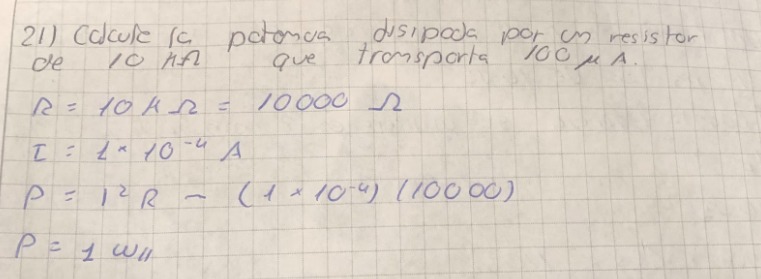 21) Calcule la potencia disipada por un resistor
de 10 KΩ que transporta 100 μA.
R = 10 K Ω = 10000 Ω
I = 1 × 10⁻⁴ A
P = I² R - (1 × 10⁻⁴) (10000)
P = 1 W//